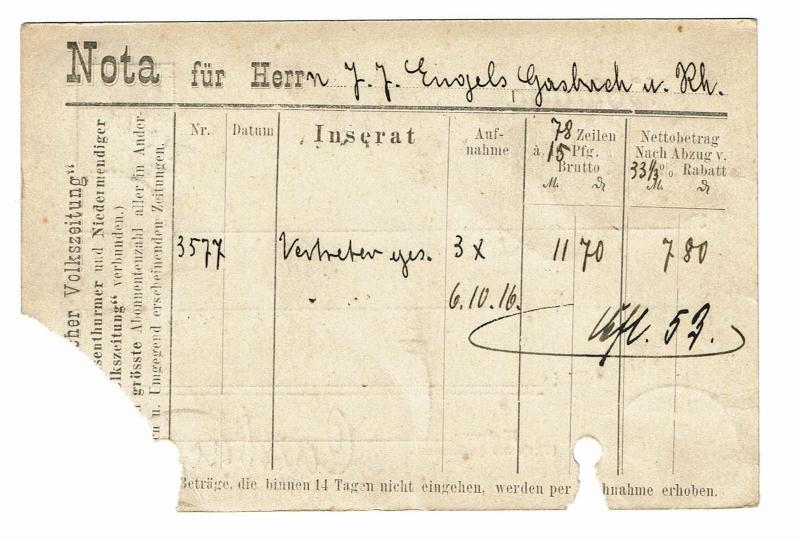 Nota für Herrn J. J. Engels, Gasbach u. Rh.
cher Volkszeitung"
senthurmer und Niedermendiger
lkszeitung" verbunden.)
grösste Abonnentenzahl aller in Ander-
u. Umgegend erscheinenden Zeitungen.
Nr.
Datum
Inserat
Auf-
nahme
78 Zeilen
à 15 Pfg.
Brutto
M. ₰
Nettobetrag
Nach Abzug v.
33⅓% Rabatt
M. ₰
3577 Vertreter ges. 3 x 11 70 7 80
6.10.16.
53.
Beträge, die binnen 14 Tagen nicht eingehen, werden per hnahme erhoben.